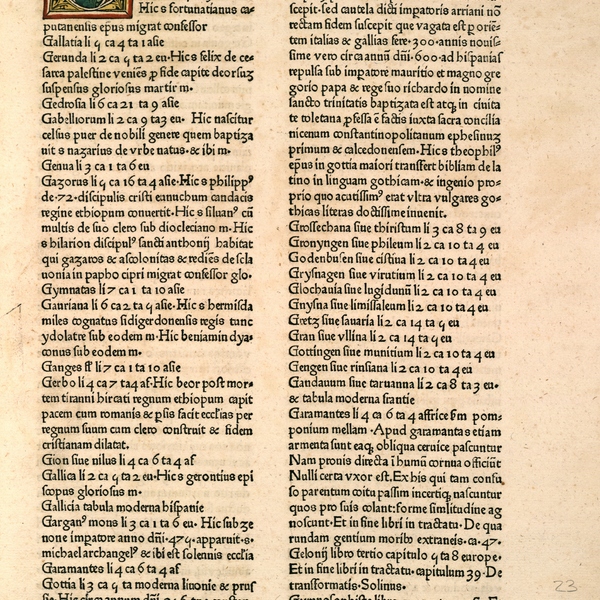 Hic s fortunatianus ca⸗
putanenſis epūs migrat confeſſor
Gallatia li 5 ca 4 ta 1 aſie
Gerunda li 2 ca 5 ta 2 eu·Hic s felix de ce⸗
ſarea paleſtine veniēs ꝓ fide capite deorſuꝫ
ſuſpenſus glorioſus martir m·
Gedroſia li 6 ca 21 ta 9 aſie
Gabelliorum li 2 ca 9 ta3 eu· Hic naſcitur
celſus puer de nobili genere quem baptiza
uit s nazarius de vrbe natus·& ibi m·
Genua li 3 ca 1 ta 6 eu
Gazorus li 5 ca 16 ta 4 aſie·Hic s philippꝰ
de·72·diſcipulis criſti eunuchum candacis
regine ethiopum conuertit·Hic s ſiluanꝰ cū
multis de ſuo clero ſub diocleciano m·Hic
s hilarion diſcipulꝰ ſancti anthonij habitat
qui gazaros & aſcolonitas & rediēs de ſcla
uonia in papho cipri migrat confeſſor glo·
Gymnatas li 7 ca 1 ta 10 aſie
Gauriana li 6 ca 2 ta 5 aſie·Hic s hermiſda
miles cognatus ſidigerdonenſis regis tunc
ydolatre ſub eo dem m·Hic beniamin dya⸗
conus ſub eodem m·
Ganges fl li 7 ca 1 ta 10 aſie
Gerbo li 4 ca 7 ta4 af·Hic beor poſt mor⸗
tem tiranni hircati regnum ethiopum capit
pacem cum romanis & ꝑſis facit eccl'ias per
regnum ſuum cum clero conſtruit & fidem
criſtianam dilatat.
Gion ſiue nilus li 4 ca 6 ta 4 af
Gallica li 2 ca 5 ta 2 eu·Hic s gerontius epi
ſcopus glorioſus m·
Gallicia tabula moderna hiſpanie
Garganꝰ mons li 3 ca 1 ta 6 eu· Hic ſub ze
none imꝑatore anno dñi·475·apparuit·s·
michael archangelꝰ & ibi eſt ſolennis eccl'ia
Garamantes li 4 ca 6 ta 4 af
Gottia li 3 ca 5 ta moderna liuonie & pruſ
ſcepit·ſed cautela dicti imꝑatoris arriani nō
rectam fidem ſuscepit que vagata eſt ꝑ oriē⸗
tem italias & gallias fere·300·annis nouiſ⸗
ſime vero circa annū dñi·600·ad hiſpanias
repulſa ſub imꝑatore mauritio et magno gre
gorio papa & rege ſuo richardo in nomine
ſancto trinitatis baptizata eſt atq̄ in ciuita
te toletana ꝓfeſſa ē factis iuxta ſacra concilia
nicenum conſtantinopolitanum epheſinuꝫ
primum & calcedonenſem·Hic s theophilꝰ
epūs in gottia maiori tranſfert bibliam de la
tino in linguam gothicam·& ingenio pro⸗
prio quo acutiſſimꝰ erat vltra vulgares go⸗
thicas literas doctiſſime inuenit.
Groſſechana ſiue thiriſtum li 3 ca 8 ta 9 eu
Gronyngen ſiue phileum li 2 ca 10 ta 4 eu
Godenbuſen ſiue ciſtiua li 2 ca 10 ta 4 eu
Gryſnagen ſiue virutium li 2 ca 10 ta 4 eu
Glochauia ſiue lugidunū li 2 ca 10 ta 4 eu
Gnyſna ſiue limiſſaleum li 2 ca 10 ta 4 eu
Gretz ſiue ſauaria li 2 ca 14 ta 5 eu
Gran ſiue vllina li 2 ca 14 ta 5 eu
Gottingen ſiue munitium li 2 ca 10 ta 4 eu
Gengen ſiue rinſiana li 2 ca 10 ta 4 eu
Gandauum ſiue taruanna li 2 ca 8 ta 3 eu·
& tabula moderna frantie
Garamantes li 4 ca 6 ta 4 affrice ẜm pom⸗
ponium mellam·Apud garamantas etiam
armenta ſunt eaq̄ obliqua ceruice paſcuntur
Nam pronis directa ī humū cornua officiūt
Nulli certa vxor eſt.Ex his qui tam confu
ſo parentum coitu paſſim incertiq̄ naſcuntur
quos pro ſuis colant:forme ſimilitudine ag
noſcunt·Et in fine libri in tractatu·De qua
rundam gentium moribꝰ extraneis·ca·47·
Gelonij libro tertio capitulo 5 ta 8 europe·
Et in fine libri in tractatu·capitulum 39·De
tranſformatis·Solinus·
23